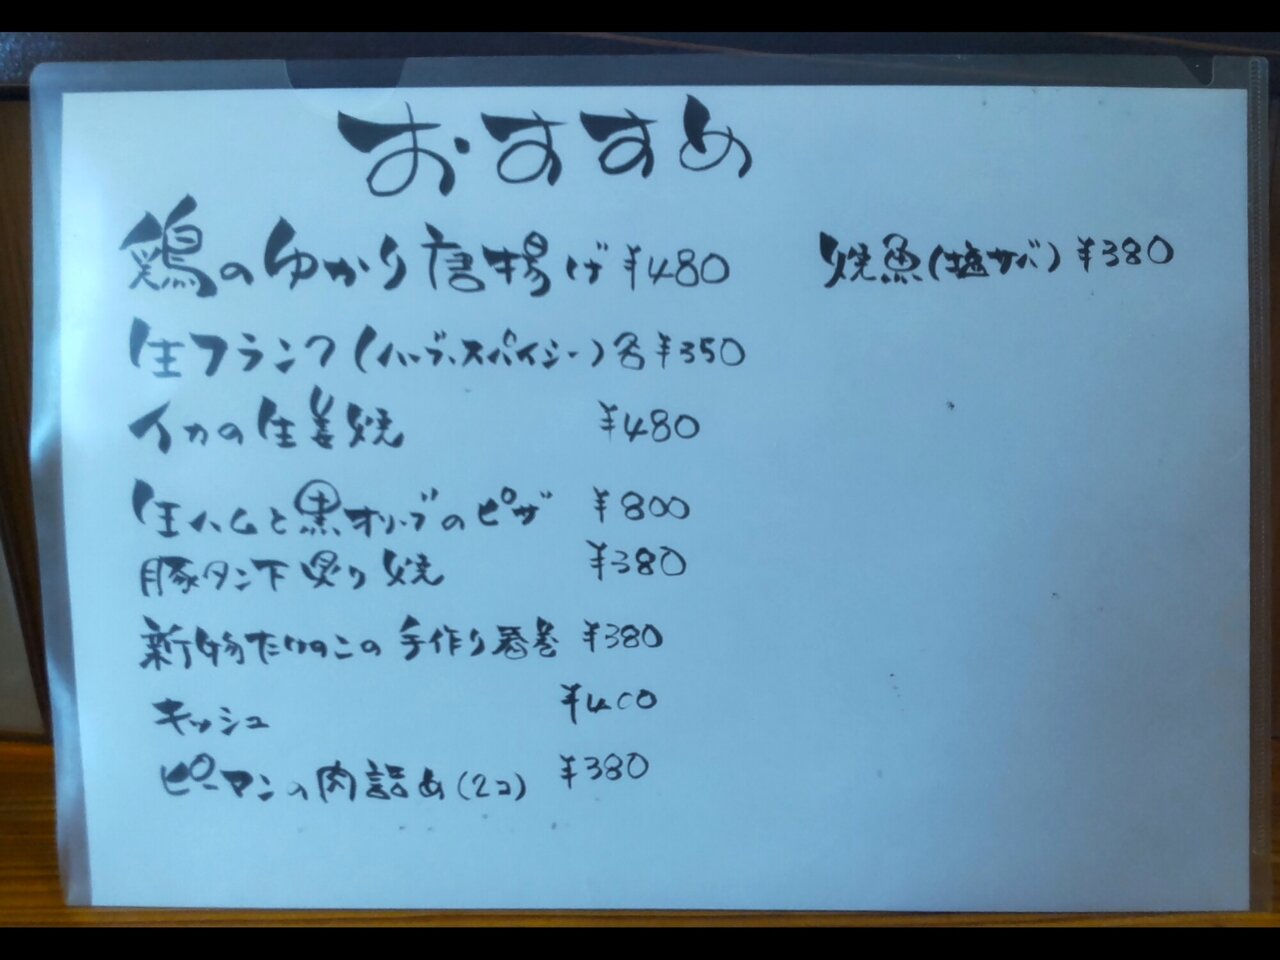 おすすめ
鶏のゆかり唐揚げ ¥480
生フランク(ハーブ、スパイシー)各¥350
イカの生姜焼 ¥480
生ハムと黒オリーブのピザ ¥800
豚タン下炙り焼 ¥380
新物たけのこの手作り春巻 ¥380
キッシュ ¥400
ピーマンの肉詰め(2コ) ¥380
焼魚(塩サバ) ¥380